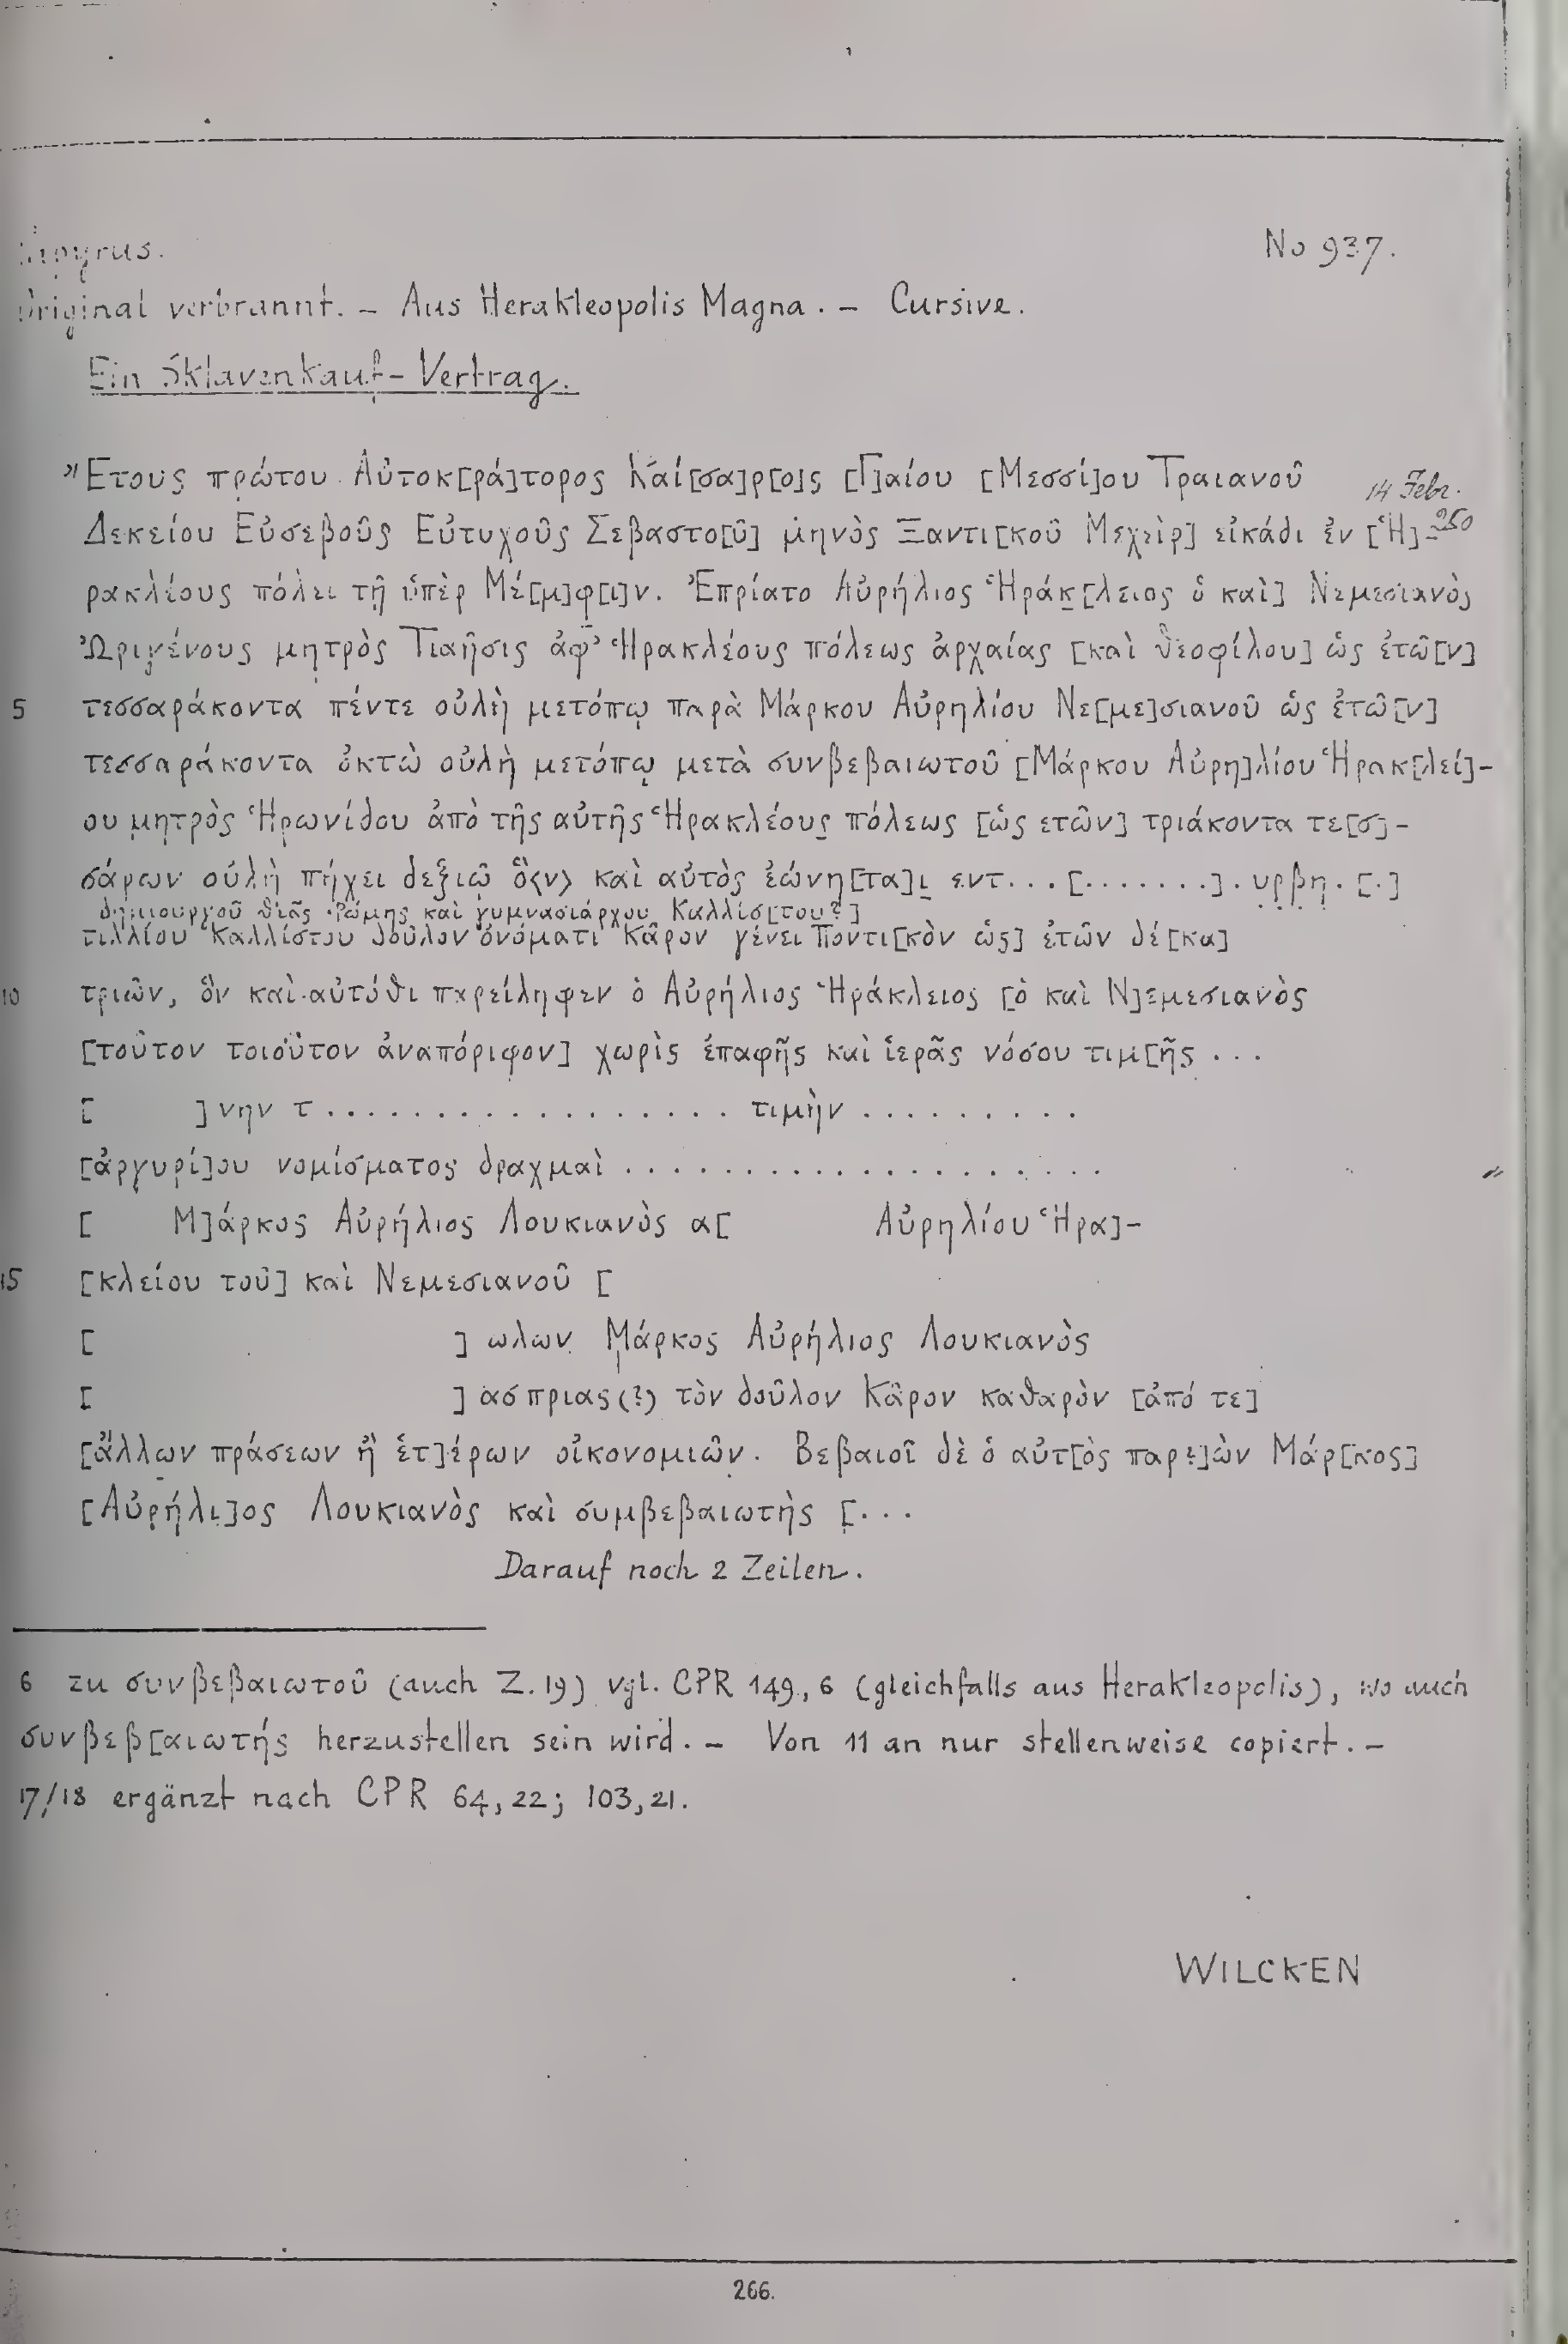 Papyrus. No 937.
Original verbrannt. – Aus Herakleopolis Magna. – Cursive.
Ein Sklavenkauf-Vertrag.
Ἔτους πρώτου Αὐτοκ[ρά]τορος Καί[σα]ρ[ο]ς [Γ]αίου [Μεσσί]ου Τραιανοῦ 14 Febr.
Δεκείου Εὐσεβοῦς Εὐτυχοῦς Σεβαστο[ῦ] μηνὸς Ξαντι[κοῦ Μεχεὶρ] εἰκάδι ἐν [Ἡ]- 250
ρακλέους πόλει τῇ ὑπὲρ Μέ[μ]φ[ι]ν. Ἐπρίατο Αὐρήλιος Ἡράκ̣[λειος ὁ καὶ] Νεμεσιανὸς
Ὠριγένους μητρὸς Τιαῆσις ἀφ' Ἡρακλέους πόλεως ἀρχαίας [καὶ θεοφίλου] ὡς ἐτῶ[ν]
5 τεσσαράκοντα πέντε οὐλὴ μετόπῳ παρὰ Μάρκου Αὐρηλίου Νε[με]σιανοῦ ὡς ἐτῶ[ν]
τεσσαράκοντα ὀκτὼ οὐλὴ μετόπῳ μετὰ συνβεβαιωτοῦ [Μάρκου Αὐρη]λίου Ἡρακ[λεί]-
ου μητρὸς Ἡρωνίδου ἀπὸ τῆς αὐτῆς Ἡρακλέους πόλεως [ὡς ετῶν] τριάκοντα τε[σ]-
σάρων οὐλὴ πήχει δεξιῷ ὃ⟨ν⟩ καὶ αὐτὸς ἐώνη[τα]ι̣ εντ...[.......].υ̣ρ̣β̣η̣.[.]
δημιουργοῦ θεᾶς Ῥώμης καὶ γυμνασιάρχου Καλλίσ[του?]
τιλλίου Καλλίστου δοῦλον ὀνόματι Κᾶρον γένει Ποντι[κὸν ὡς] ἐτῶν δέ[κα]
10 τριῶν, ὃν καὶ αὐτόθι παρείληφεν ὁ Αὐρήλιος Ἡράκλειος [ὁ καὶ Ν]εμεσιανὸς
[τοῦτον τοιοῦτον ἀναπόριφον] χωρὶς ἐπαφῆς καὶ ἱερᾶς νόσου τιμ[ῆς ...
[ ]νην τ................. τιμὴν .........
[ἀργυρί]ου νομίσματος δραχμαὶ ...................
[ Μ]άρκος Αὐρήλιος Λουκιανὸς α[ Αὐρηλίου Ἡρα]-
15 [κλείου τοῦ] καὶ Νεμεσιανοῦ [
[ ] ωλων Μάρκος Αὐρήλιος Λουκιανὸς
[ ] ασπριας(?) τὸν δοῦλον Κᾶρον καθαρὸν [ἀπό τε]
[ἄλλων πράσεων ἢ ἑτ]έρων οἰκονομιῶν. Βεβαιοῖ δὲ ὁ αὐτ[ὸς παρε]ὼν Μάρ[κος]
[Αὐρήλι]ος Λουκιανὸς καὶ συμβεβαιωτὴς [...
Darauf noch 2 Zeilen.
6 zu συνβεβαιωτοῦ (auch Z. 19) vgl. CPR 149, 6 (gleichfalls aus Herakleopolis), wo auch
συνβεβ[αιωτής herzustellen sein wird. – Von 11 an nur stellenweise copiert. –
17/18 ergänzt nach CPR 64, 22; 103, 21.
WILCKEN
266.